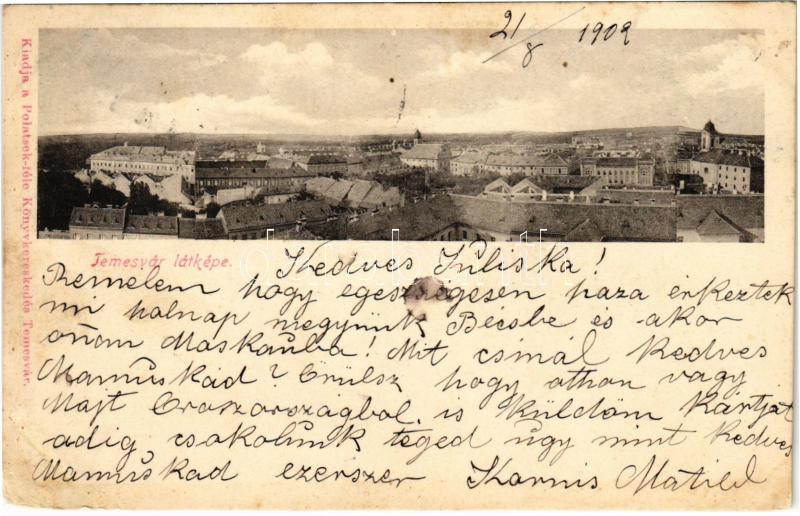 21/8 1902
Kiadja a Polatsek-féle Könyvkereskedés Temesvár.
Temesvár látképe.
Kedves Juliska!
Remelem hogy egeszségesen haza érkeztek
mi holnap megyünk Becsbe és akor
onam Moskauba! Mit csinál kedves
Mamuskád? Örülsz hogy othon vagy
Majt Oroszországbol is küldöm kártját
adig csokolunk téged ugy mint kedves
Mamuskad ezerszer Karnis Matild